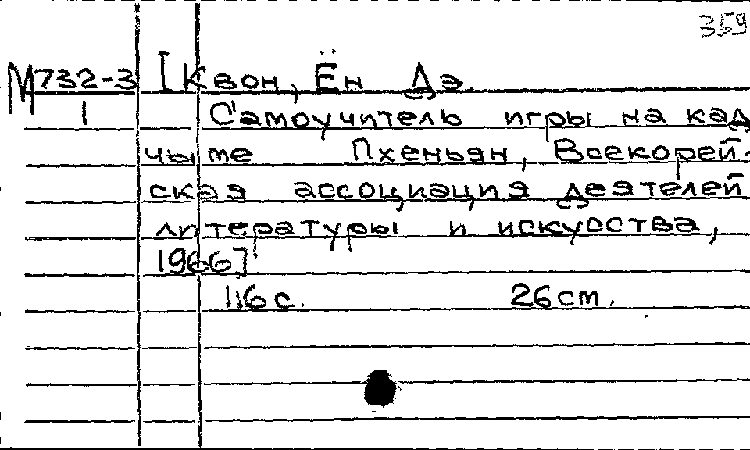 359
М732-3 [Квон, Ён Дэ.
1 Самоучитель игры на кад
чыте Пхеньян, Всекорей-
ская ассоциация деятелей
литературы и искусства,
1966]
116 с. 26 cm.